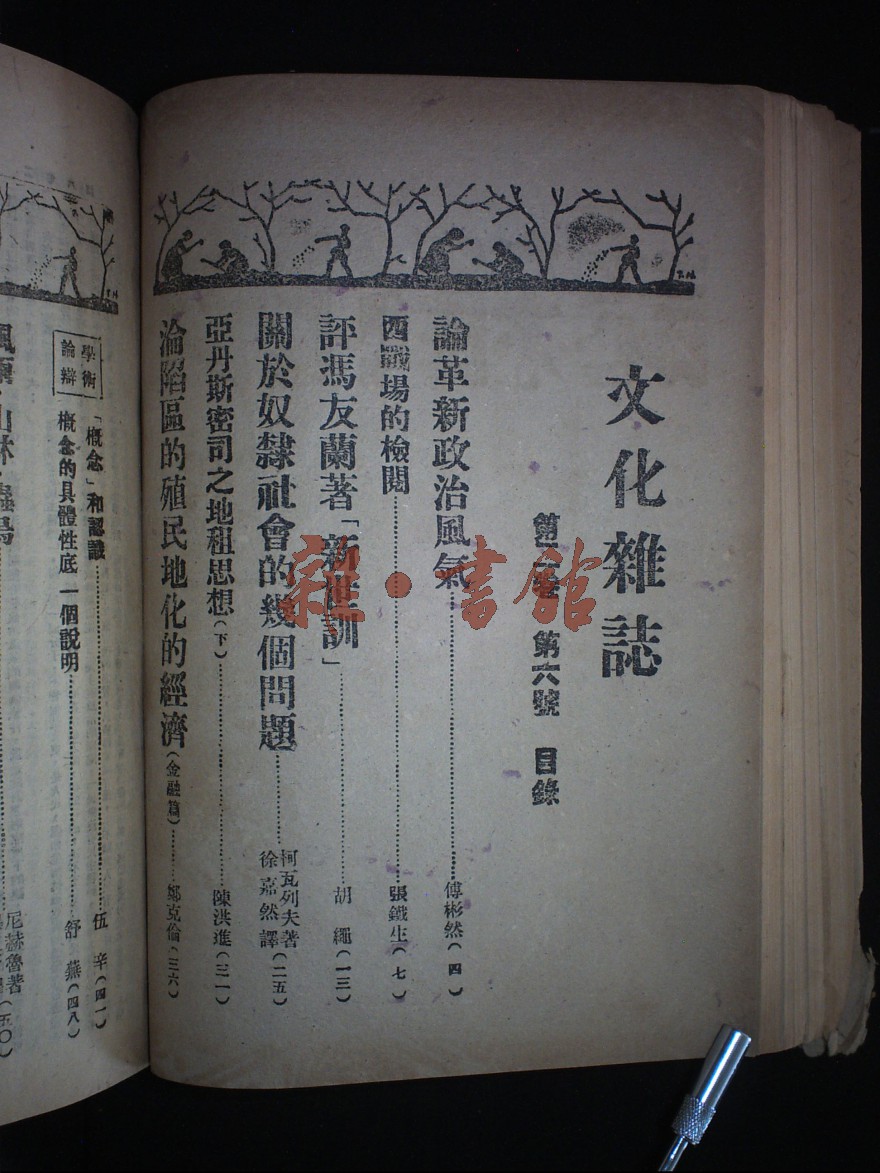 文化雜誌
第二卷 第六號 目錄
論革新政治風氣……傅彬然(四)
西戰場的檢閱……張鐵生(七)
評馮友蘭著「新世訓」……胡繩(一三)
關於奴隸社會的幾個問題……柯瓦列夫著 徐嘉然譯(二五)
亞丹斯密司之地租思想(下)……陳洪進(三一)
淪陷區的殖民地化的經濟(金融篇)……鄭克倫(三六)
學術論辯
「概念」和認識……伍辛(四一)
概念的具體性底一個說明……舒蕪(四八)
山林·蟲鳥……尼赫魯著(五〇)
雜·書館